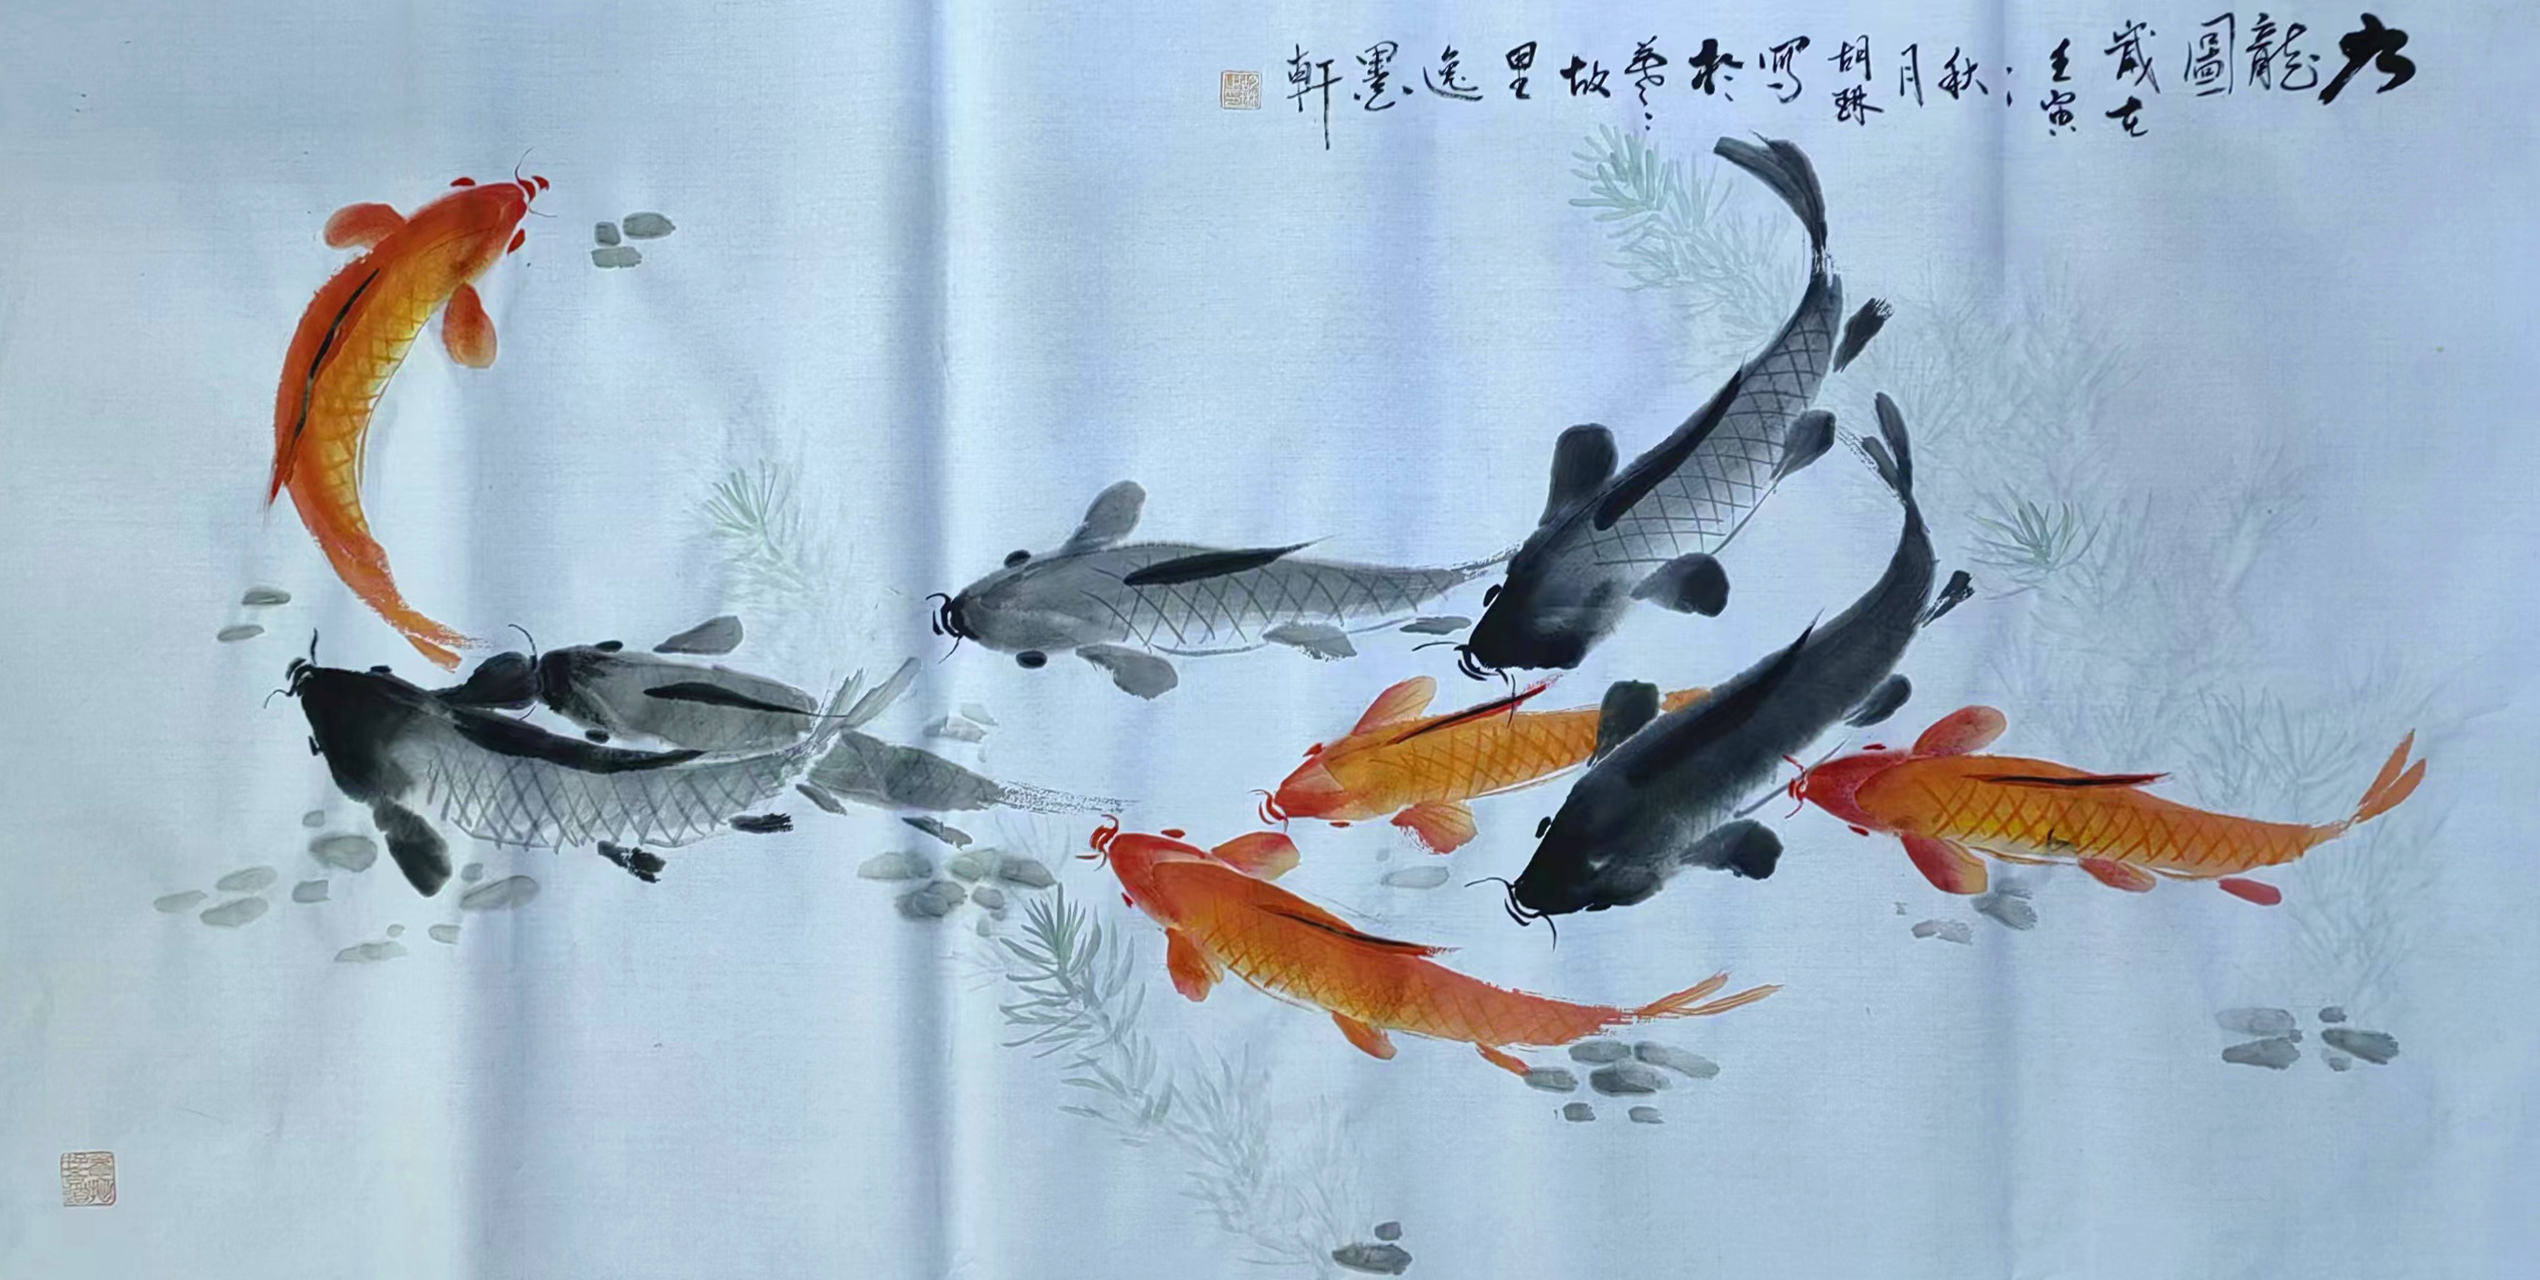 九龍圖歲在壬寅之秋月胡琳寫於羲之故里逸墨軒